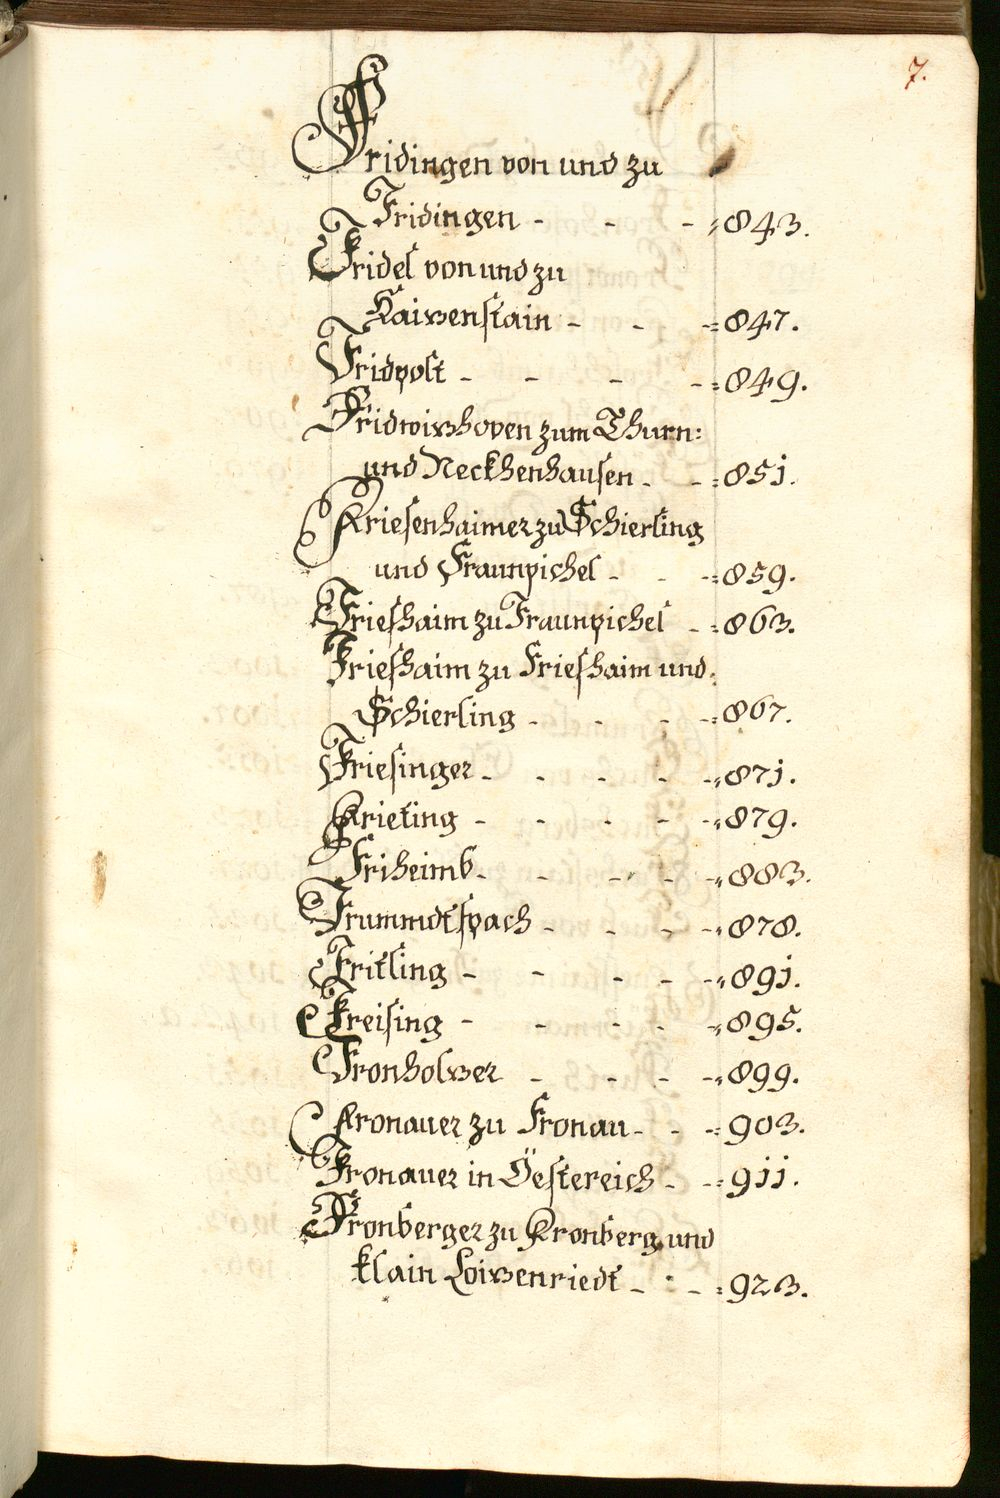 7.
Fridingen von und zu
Fridingen - - - 843.
Fridel von und zu
Kaizenstain - - = 847.
Fridpolt - - - - = 849.
Fridwizhoven zum Thurn:
und Neckhenhausen - - = 851.
Friesenhaimer zu Schierling
und Fraunpichel - - = 859.
Frieshaim zu Fraunpichel - = 863.
Frieshaim zu Frieshaim und
Schierling - - - = 867.
Friesinger - - - - 871.
Frieting - - - - 879.
Friheimb - - - - 883.
- - - 878.
Fritling - - - - 891.
Freising - - - - 895.
Fronholzer - - - - 899.
Fronauer zu Fronau - - = 903.
Fronauer in Öestereich - = 911.
Fronberger zu Fronberg und
klain Loizenriedt - - = 923.